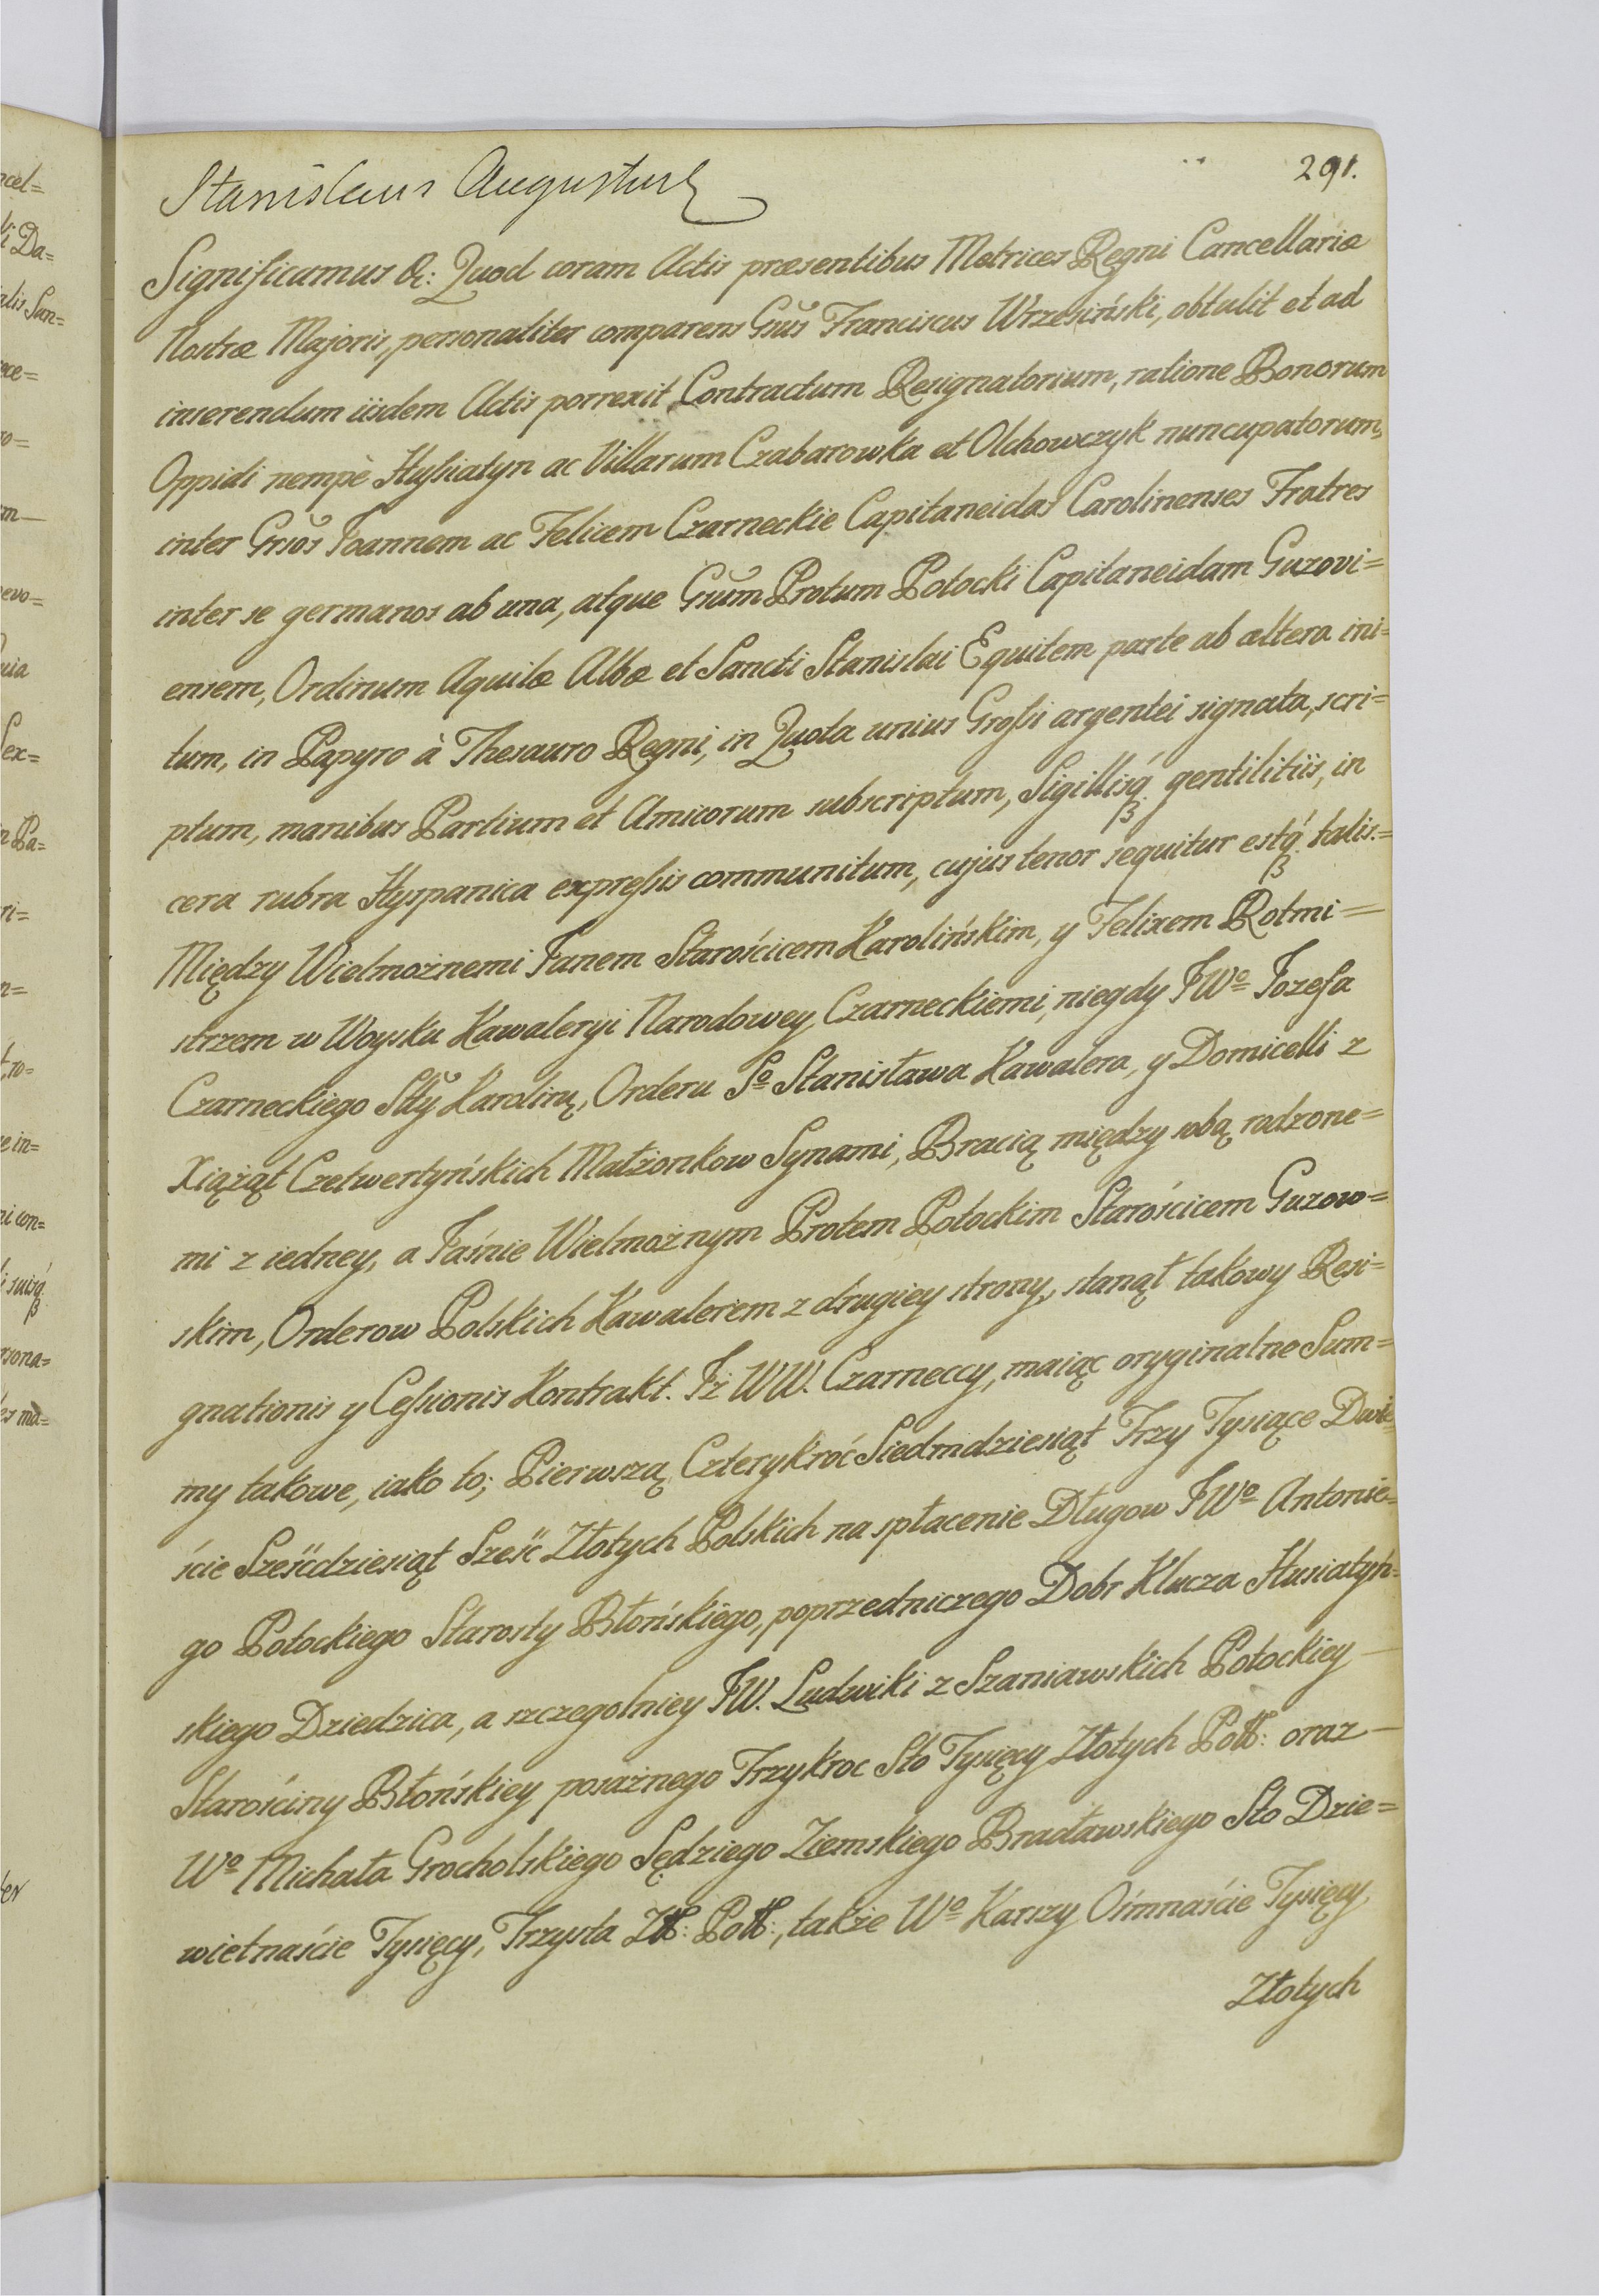 291.
Stanislaus Augustus
Significamus &c: Quod coram Actis præsentibus Metrices Regni Cancellariæ
Nostræ Majoris, personaliter comparens Gsũs Franciscus Wrzesiński, obtulit et ad
inserendum iisdem Actis porrexit Contractum Resignatorium, ratione Bonorum
Oppidi nempè Hysiatyn ac Villarum Czabarowka et Olchowczyk nuncupatorum,
inter Grsõs Joannem ac Felicem Czarneckie Capitaneidas Carolinenses Fratres
inter se germanos ab una, atque Gsũm Protum Potocki Capitaneidam Guzovi=
ensem, Ordinum Aquilæ Albæ et Sancti Stanislai Equitem parte ab altera ini=
tum, in Papyro à Thesauro Regni, in Quota unius Grossi argentei signata, scri=
ptum, manibus Partium et Amicorum subscriptum, Sigillisq́ꝫ gentilitiis, in
cera rubra Hyspanica expressis communitum, cujus tenor sequitur estq́ꝫ talis.=
Między Wielmożnemi Janem Starościcem Karolińskim, y Felixem Rotmi=
strzem w Woysku Kawaleryi Narodowey, Czarneckiemi, niegdy JWº Jozefa
Czarneckiego Stty Karoliną, Orderu Sº Stanisława Kawalera, y Domicelli z
Xiążąt Czetwertyńskich Małżonkow Synami, Bracią między sobą rodzone=
mi z iedney, a Jaśnie Wielmożnym Protem Potockim Starościcem Guzow=
skim, Orderow Polskich Kawalerem z drugiey strony, stanął takowy Resi=
gnationis y Cessionis Kontrakt. Iż WW. Czarneccy, maiąc oryginalne Sum=
my takowe, iako to; Pierwszą Czterykroć Siedmdziesiąt Trzy Tysiące Dwie=
ście Sześćdziesiąt Sześć Złotych Polskich na spłacenie Długow JWº Antonie=
go Potockiego Starosty Błońskiego, poprzedniczego Dobr Klucza Husiatyń=
skiego Dziedzica, a szczegolniey JW. Ludwiki z Szaniawskich Potockiey
Starościny Błońskiey posażnego Trzykroc Sto Tysięcy Złotych Poll: oraz
Wº Michała Grocholskiego Sędziego Ziemskiego Bracławskiego Sto Dzie=
wietnaście Tysięcy, Trzysta Zł: Poll:, także Wº Karszy Ośmnaście Tysięcy
Złotych